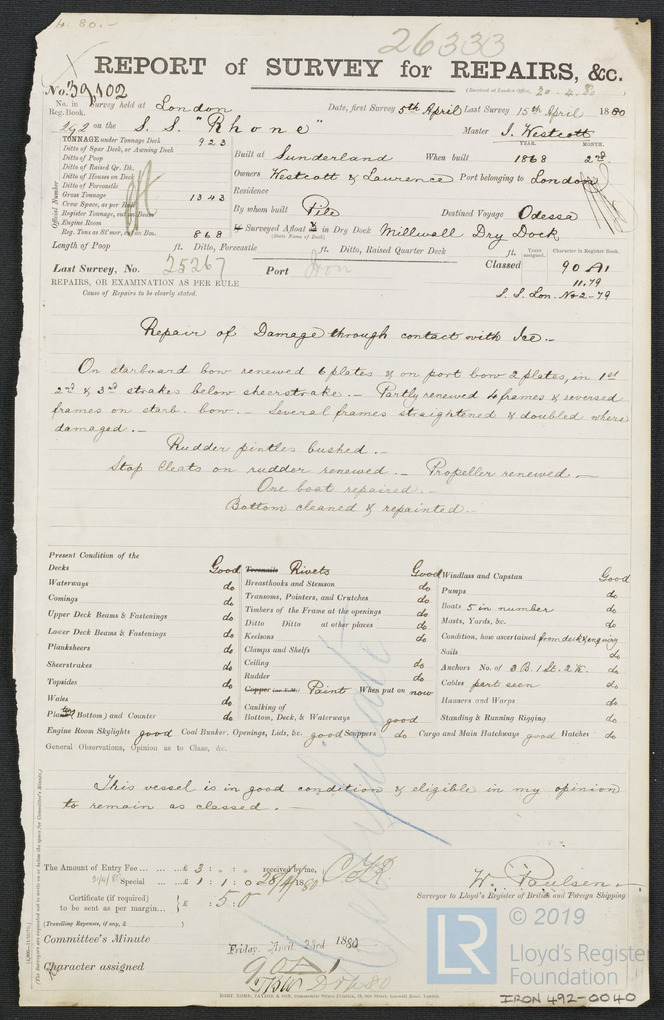 4. 80. -
26333
REPORT of SURVEY for REPAIRS, &c.
(Received at London Office, 20.4.80)
No. 39,102
No. in Survey held at London Date, first Survey 5th April Last Survey 15th April 1880
Reg. Book.
192 on the S. S. "Rhone" Master J. Westcott
TONNAGE under Tonnage Deck 923
Ditto of Spar Deck, or Awning Deck
Ditto of Poop
Ditto of Raised Qr. Dk.
Ditto of Houses on Deck
Ditto of Forecastle
Gross Tonnage 1343
Crew Space, as per Rule
Register Tonnage, cut on Beam
Engine Room
Reg. Tons as St'mer, cut on Bm. 868
Official Number
YEAR. MONTH.
Built at Sunderland When built 1868 2nd
Owners Westcott & Laurence Port belonging to London
Residence
By whom built Pile Destined Voyage Odessa
Surveyed Afloat & in Dry Dock Millwall Dry Dock
(State Name of Dock)
Length of Poop ft. Ditto, Forecastle ft. Ditto, Raised Quarter Deck ft.
Years assigned. Character in Register Book.
Last Survey, No. 25267 Port Iron Classed 90 A1
11.79
S. S. Lon. No 2-79
REPAIRS, OR EXAMINATION AS PER RULE
Cause of Repairs to be clearly stated.
Repair of Damage through contact with Ice.-
On starboard bow renewed 6 plates & on port bow 2 plates, in 1st
2nd & 3rd strakes below sheerstrake.- Partly renewed 4 frames & reversed
frames on starb. bow.- Several frames straightened & doubled where
damaged.-
Rudder pintles bushed.-
Stop Cleats on rudder renewed.- Propeller renewed.-
One boat repaired.-
Bottom cleaned & repainted.-
Present Condition of the
Decks Good
Waterways do
Comings do
Upper Deck Beams & Fastenings do
Lower Deck Beams & Fastenings do
Planksheers do
Sheerstrakes do
Topsides do
Wales do
Plating Bottom) and Counter do
Treenails Rivets Good
Breasthooks and Stemson do
Transoms, Pointers, and Crutches do
Timbers of the Frame at the openings do
Ditto Ditto at other places do
Keelsons do
Clamps and Shelfs
Ceiling do
Rudder do
Copper (or Y.M.) Paint When put on now
Caulking of
Bottom, Deck, & Waterways good
Windlass and Capstan Good
Pumps do
Boats 5 in number do
Masts, Yards, &c. do
Condition, how ascertained from deck & enquiry
Sails do
Anchors No. of 3 B. 1 St. 2 K. do
Cables part seen do
Hawsers and Warps do
Standing & Running Rigging do
Engine Room Skylights good Coal Bunker, Openings, Lids, &c. good Scuppers do Cargo and Main Hatchways good Hatches do
General Observations, Opinion as to Class, &c.
This vessel is in good condition & eligible in my opinion
to remain as classed.-
Certificate
The Amount of Entry Fee ... £ 3 : " : " received by me,
Special ... £ 1 : 1 : 0 28/4/1880
Certificate (if required) £ : 5 : 0
to be sent as per margin...
(Travelling Expenses, if any, £ )
W. Paulsen
Surveyor to Lloyd's Register of British and Foreign Shipping
Committee's Minute
Friday, April 23rd 1880.
Character assigned 90 A1
© 2019
LR
Lloyd's Register
Foundation
IRON 492-0040